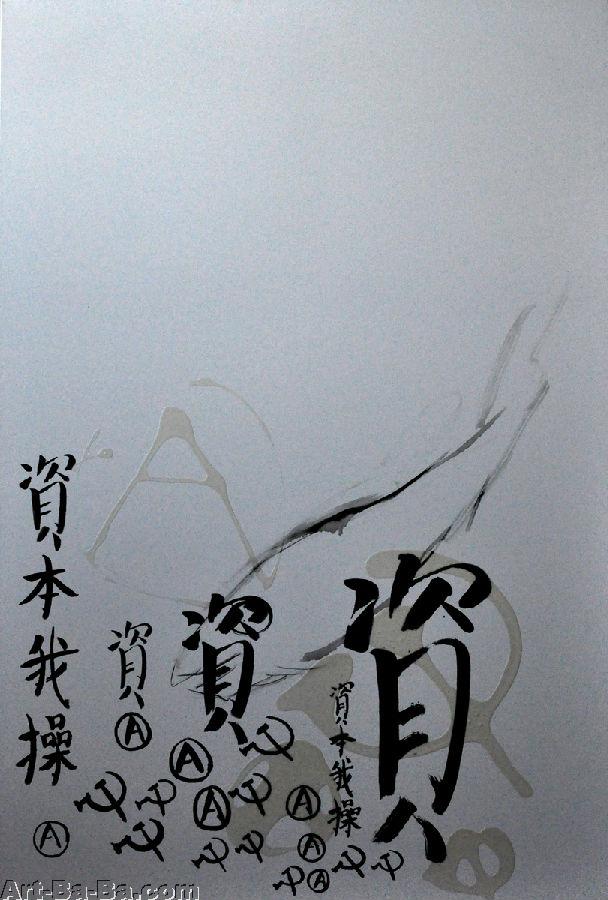 資本我操
資
資
資本我操
資
A
A
A
A
A
A
A
A
Art-Ba-Ba.com